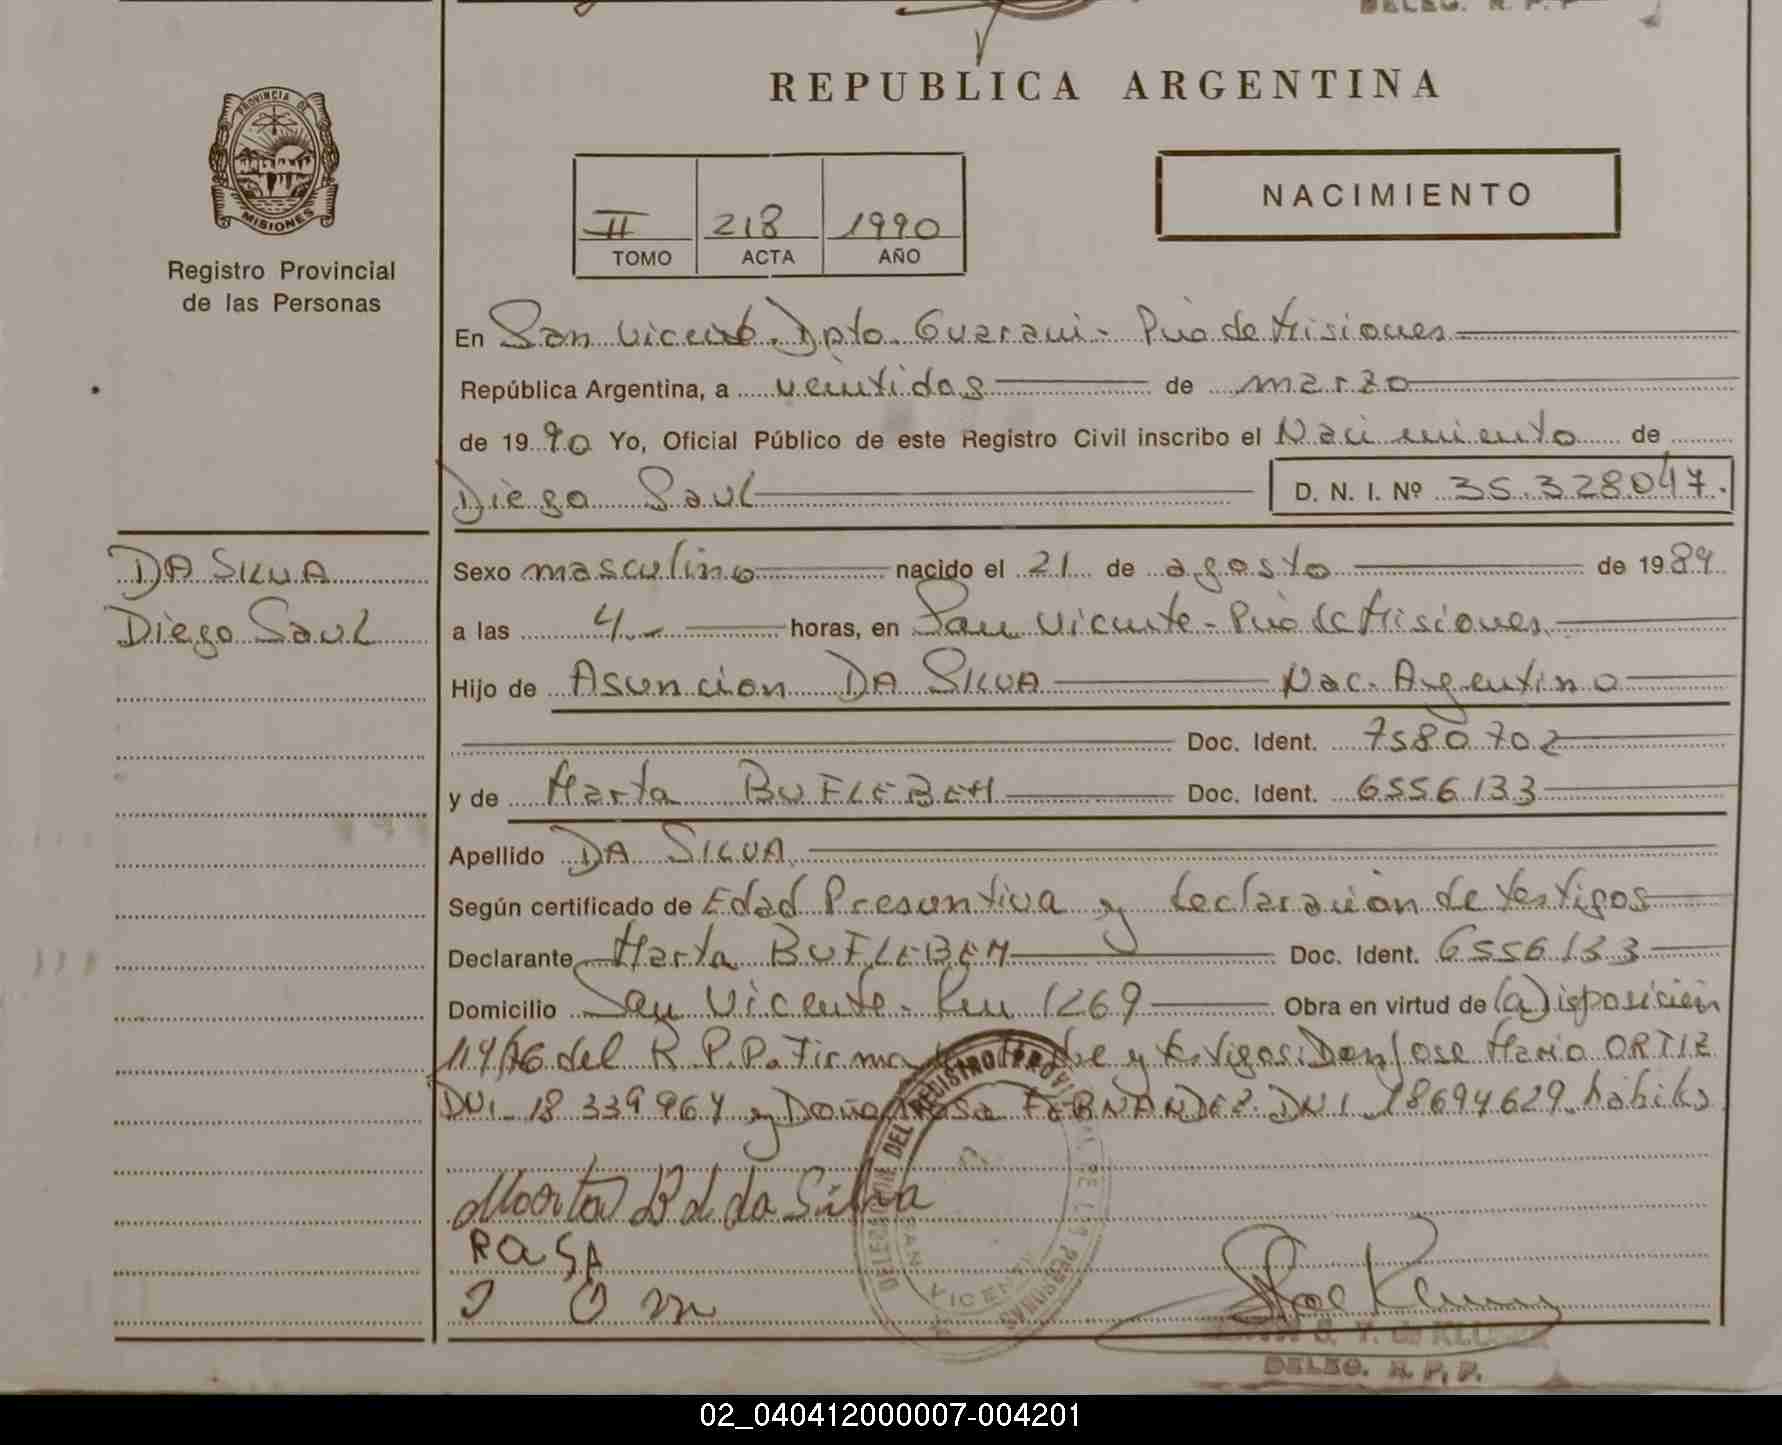 DELEG. R. P. P
REPUBLICA ARGENTINA
PROVINCIA DE
MISIONES
Registro Provincial
de las Personas
II 218 1990
TOMO ACTA AÑO
NACIMIENTO
En San Vicente. Dpto. Guarani - Pcia de Misiones
República Argentina, a veintidos de marzo
de 1990 Yo, Oficial Público de este Registro Civil inscribo el Nacimiento de
Diego Saul D. N. I. Nº 35.328047.
DA SILVA
Diego Saul
Sexo masculino nacido el 21 de agosto de 1989
a las 4.- horas, en San Vicente - Pcia de Misiones
Hijo de Asuncion DA SILVA Nac. Argentino
Doc. Ident. 7580702
y de Marta BUFLEBEM Doc. Ident. 6556133
Apellido DA SILVA
Según certificado de Edad Presuntiva y declaración de testigos
Declarante Marta BUFLEBEM Doc. Ident. 6556133
Domicilio San Vicente - Km 1269 Obra en virtud de (a) isposición
119/76 del R.P.P. Firma y testigos: Don Jose Mario ORTIZ
DNI. 18 339 964 y Doña Rosa FERNANDEZ. DNI. 18694629. hábiles
Marta B d da Silva
ROSA
J O m
DELEGACION DEL REGISTRO PROVINCIAL DE LAS PERSONAS
SAN VICENTE
DELEG. R. P. P.
02_040412000007-004201